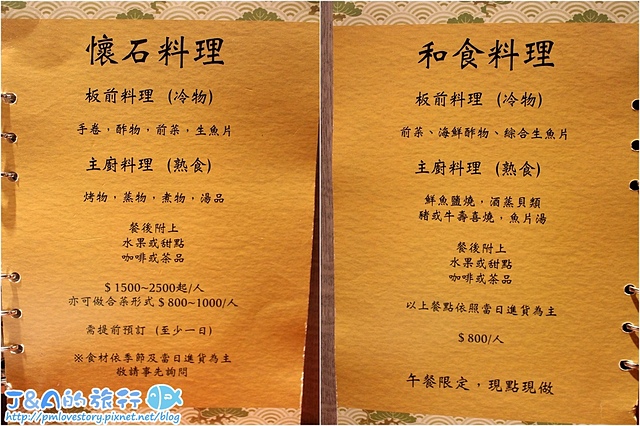 懷石料理
板前料理 (冷物)
手卷，酢物，前菜，生魚片
主廚料理 (熟食)
烤物，蒸物，煮物，湯品
餐後附上
水果或甜點
咖啡或茶品
$1500~2500起/人
亦可做合菜形式$800~1000/人
需提前預訂 (至少一日)
※食材依季節及當日進貨為主
敬請事先詢問
和食料理
板前料理 (冷物)
前菜、海鮮酢物、綜合生魚片
主廚料理 (熟食)
鮮魚鹽燒，酒蒸貝類
豬或牛壽喜燒，魚片湯
餐後附上
水果或甜點
咖啡或茶品
以上餐點依照當日進貨為主
$800/人
午餐限定，現點現做
J&A的旅行
http://pmlovestory.pixnet.net/blog